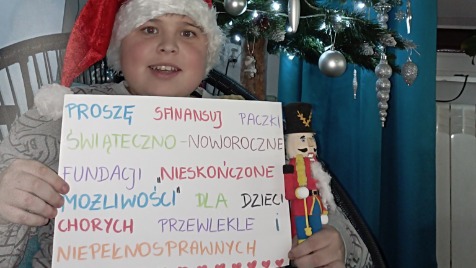 PROSZĘ SFINANSUJ PACZKI
ŚWIĄTECZNO-NOWOROCZNE
FUNDACJI "NIESKOŃCZONE
MOŻLIWOŚCI" DLA DZIECI
CHORYCH PRZEWLEKLE I
NIEPEŁNOSPRAWNYCH